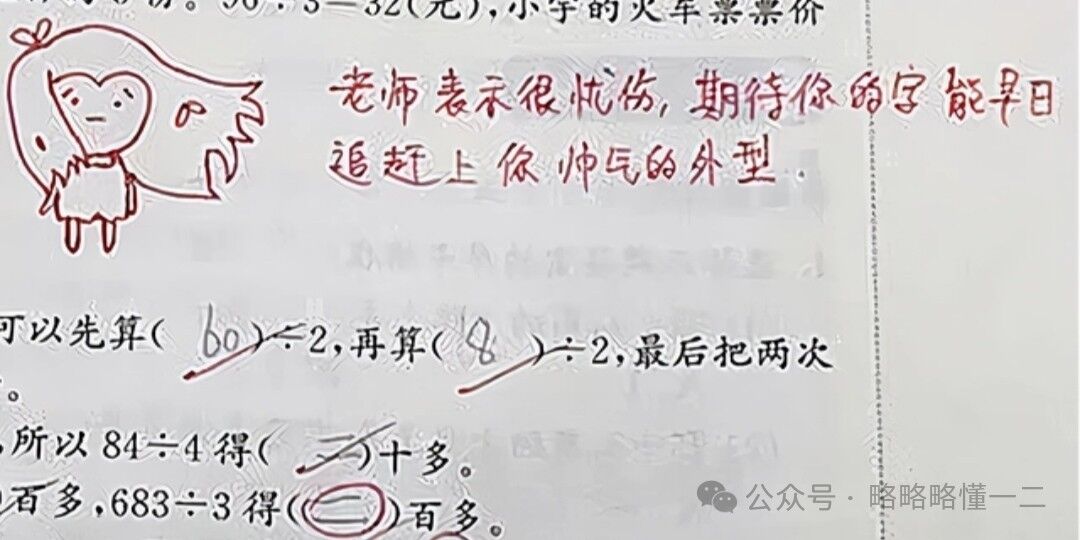 96÷3=32(元),小宇的火车票票价
老师表示很忧伤,期待你的字能早日
追赶上你帅气的外型.
可以先算( 60 )÷2,再算( 8 )÷2,最后把两次
。
,所以84÷4得( 二 )十多。
百多,683÷3得( 二 )百多。
公众号·略略略懂一二